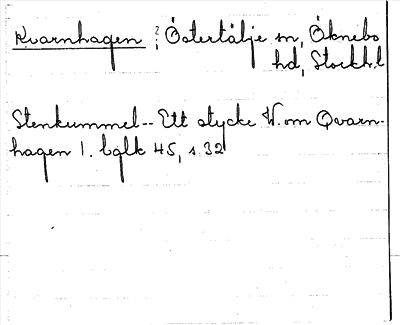 Kvarnhagen ? ; Östertälje sn, Öknebo
hd, Stockh.l
Stenkummel-- Ett stycke V. om Qvarn-
hagen l. bqlk 45, s. 32